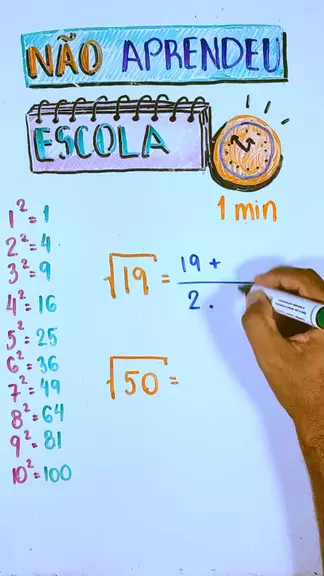 NÃO APRENDEU
ESCOLA
1 min
1² = 1
2² = 4
3² = 9
4² = 16
5² = 25
6² = 36
7² = 49
8² = 64
9² = 81
10² = 100
√19 = 19 +
2.
√50 =